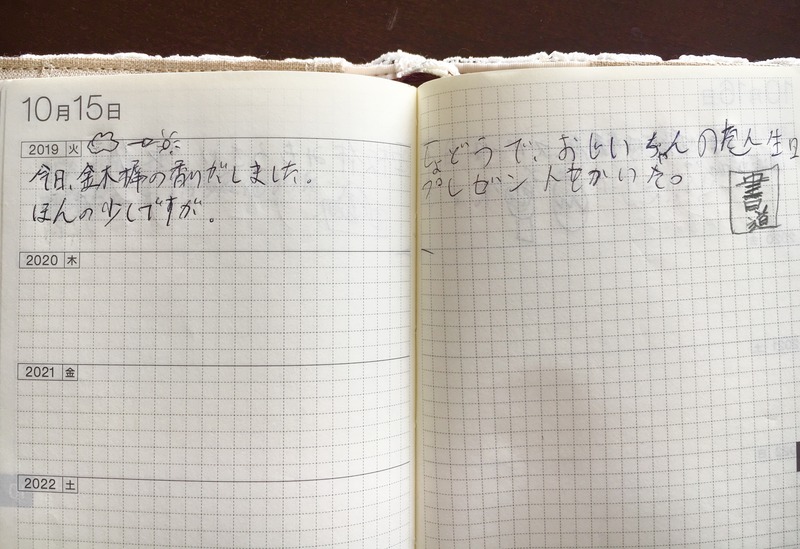 10月15日
2019 火
今日、金木犀の香りがしました。
ほんの少しですが。
2020 木
2021 金
2022 土
しょどうで、おじいちゃんのたん生日
プレゼントをかいた。
書道